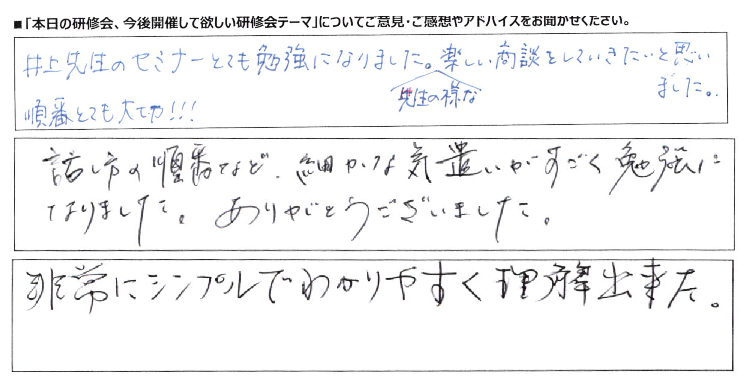 ■「本日の研修会、今後開催して欲しい研修会テーマ」についてご意見・ご感想やアドバイスをお聞かせください。
井上先生のセミナーとても勉強になりました。楽しい商談をしていきたいと思い
先生の様な
ました。
順番とても大切!!!
話し方の順番など、細かな気遣いがすごく勉強に
なりました。ありがとうございました。
非常にシンプルでわかりやすく理解出来た。